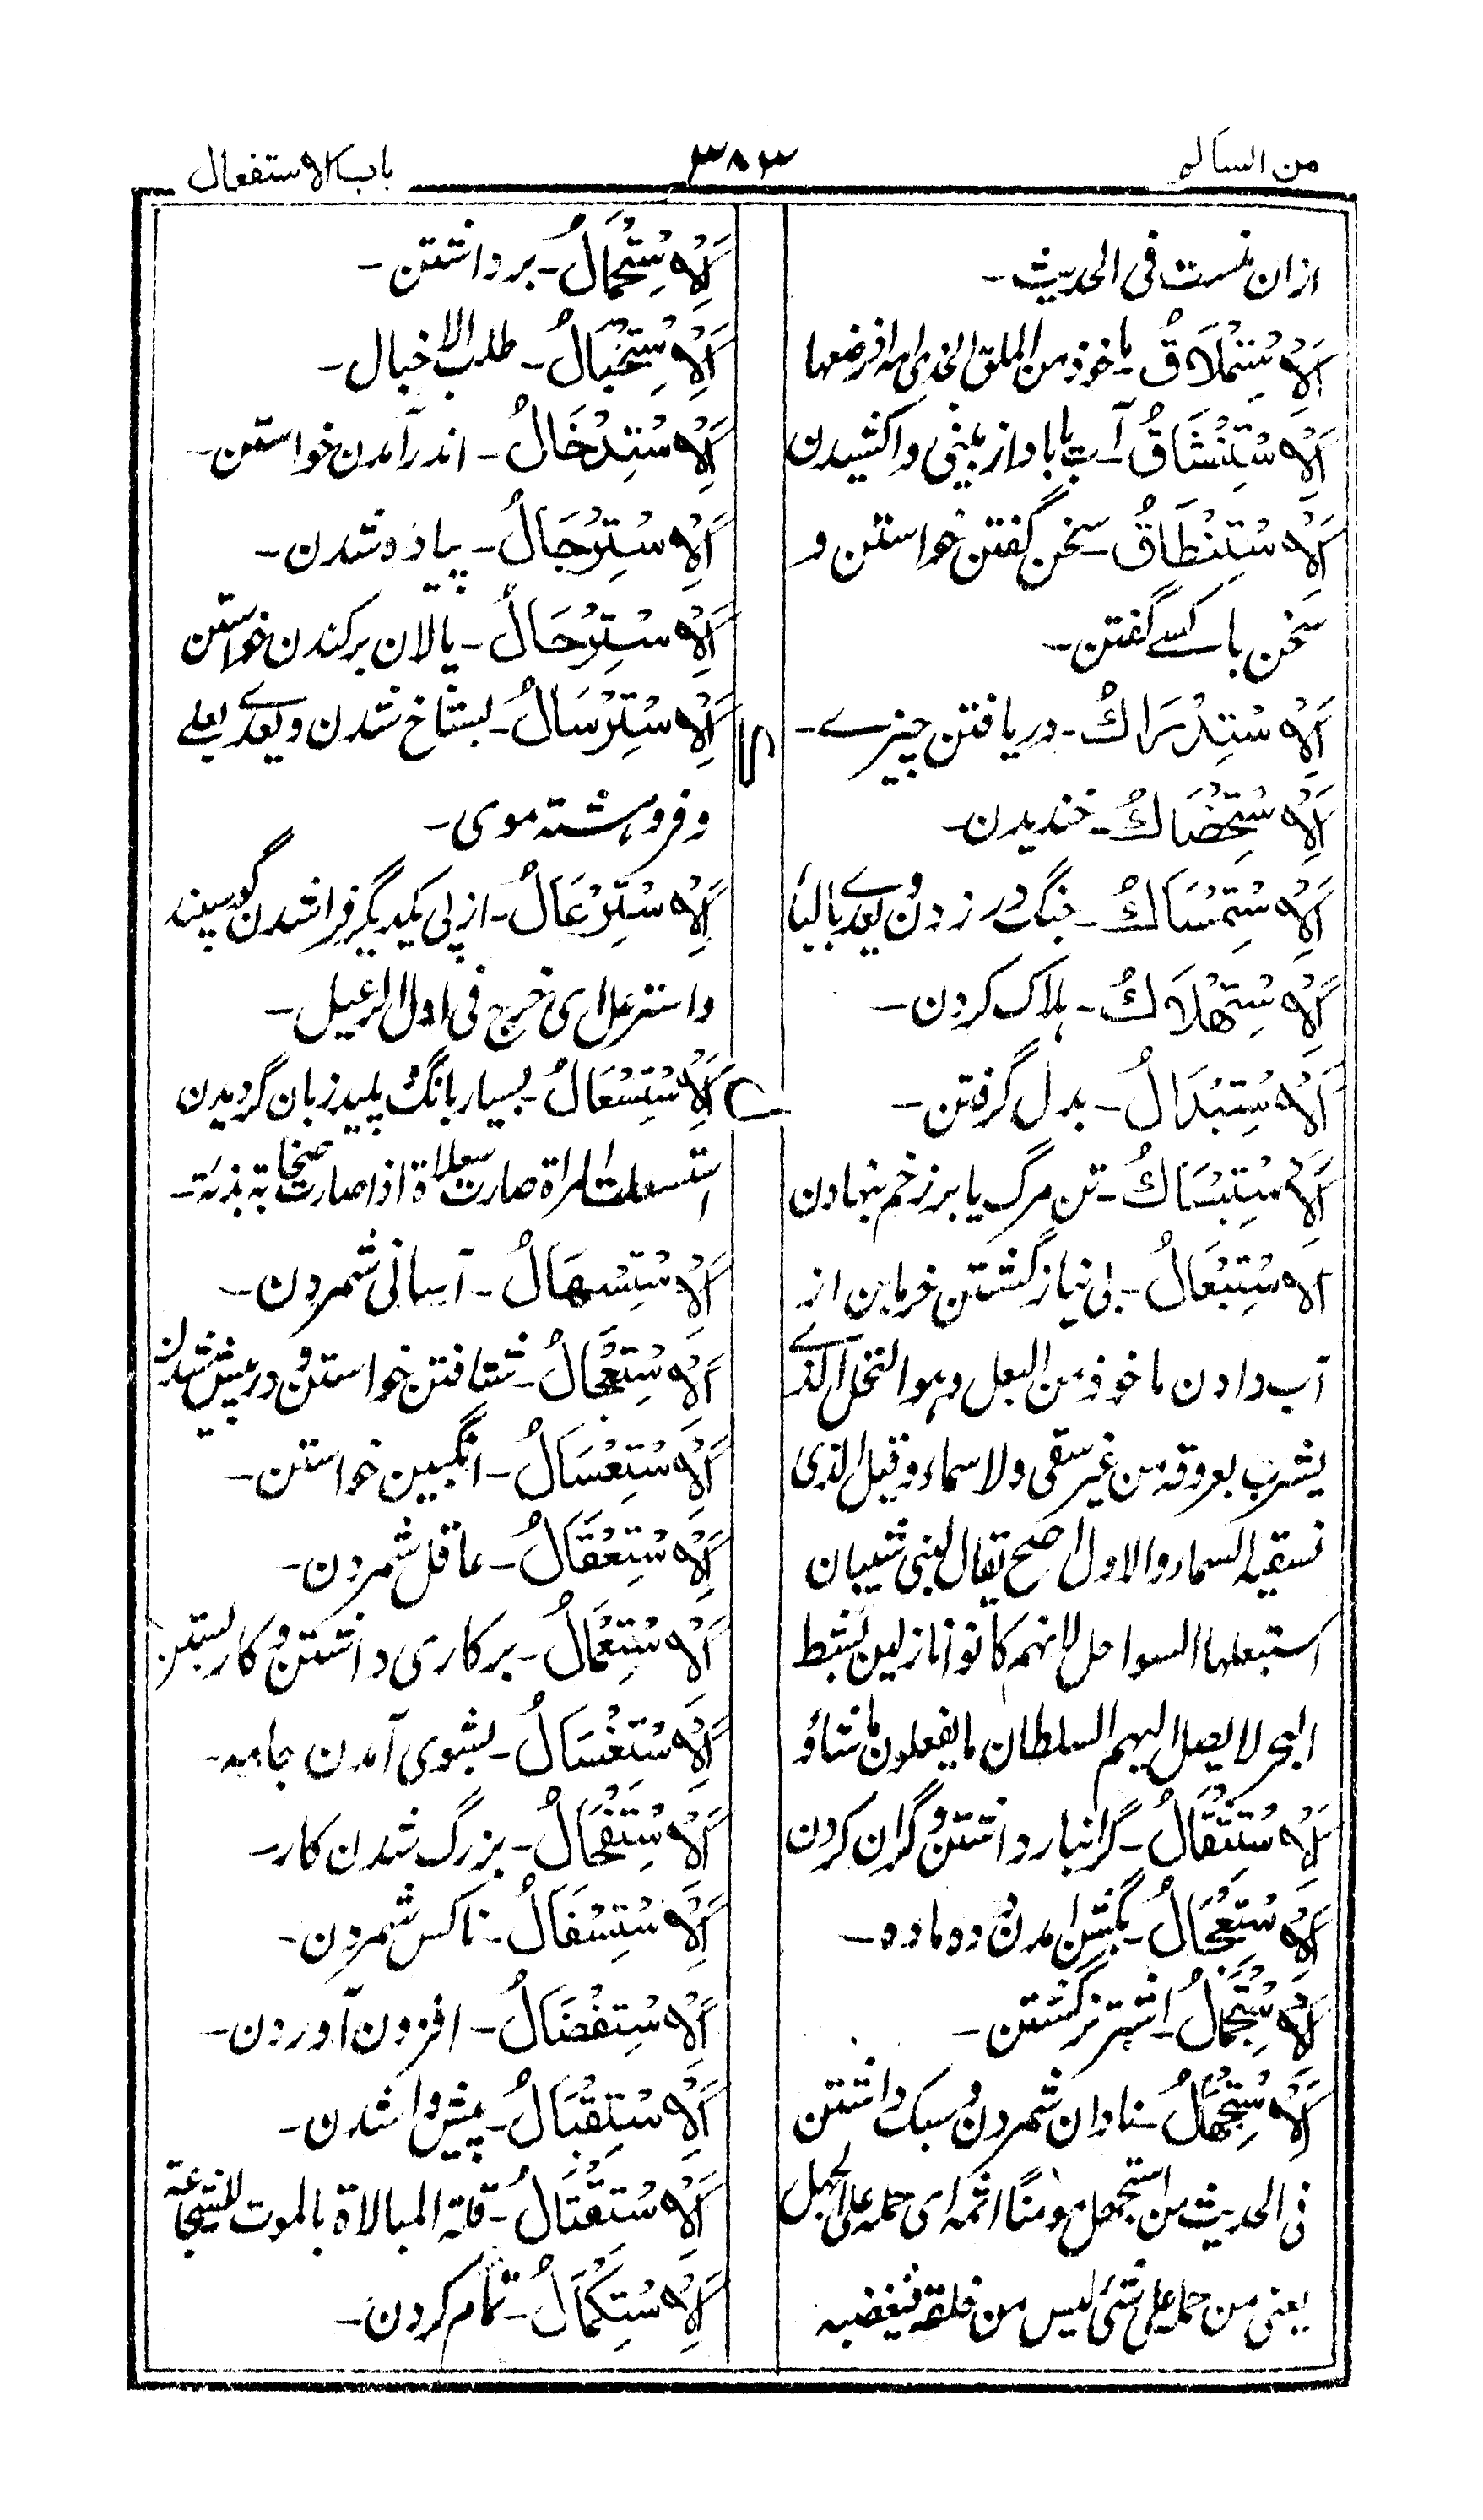 من السالم
٣٨٣
باب الاستفعال
ازان نمست فی الحدیث۔
اَلْاِسْتِمْلَاقُ۔ ماخوذ من الملق
اَلْاِسْتِنْشَاقُ آب یا باد از بینی واکشیدن
اَلْاِسْتِنْطَاقُ۔ سخن گفتن خواستن و
سخن با کسے گفتن۔
اَلْاِسْتِدْرَاكُ۔ دریافتن چیزے۔
اَلْاِسْتِضْحَاكُ۔ خندیدن۔
اَلْاِسْتِمْسَاكُ۔ چنگ در زدن و یعدی بالباٗ
اَلْاِسْتِهْلَاكُ۔ ہلاک کردن۔
اَلْاِسْتِبْدَالُ۔ بدل گرفتن۔
اَلْاِسْتِبْسَاكُ۔ تن مرگ یا بر زخم نہادن
اَلْاِسْتِبْعَالُ۔ بی نیاز گشتن خرمابن از
آب دادن ماخوذ من البعل وہو النخل الذے
یشرب بعروقہ من غیر سقی ولا سماء وقیل الذی
تسقیہ السماء والاول اصح یقال لبنی شیبان
استبعلہا السواحل لانہم کانوا نازلین بشط
البحر لا یصل الیہم السلطان یفعلون ماشاؤ
اَلْاِسْتِثْقَالُ۔ گرانبار داشتن و گران کردن
اَلْاِسْتِعْجَالُ۔ بگشن امدن ده ماده۔
اَلْاِسْتِجْمَالُ۔ اشتر نر گشتن۔
اَلْاِسْتِجْهَالُ۔ نادان شمردن و سبک داشتن
فی الحدیث من استجہل مومنًا اثمہ ای حملہ علی الجہل
یعنی من حملہ علی شئ لیس من خلقہ فیغضبہ
اَلْاِسْتِحْمَالُ۔ برداشتن۔
اَلْاِسْتِخْبَالُ۔ طلب الاخبال۔
اَلْاِسْتِدْخَالُ۔ اندرآمدن خواستن۔
اَلْاِسْتِرْجَالُ۔ پیاده شدن۔
اَلْاِسْتِرْحَالُ۔ پالان برکندن خواستن
اَلْاِسْتِرْسَالُ۔ بستاخ شدن و یعدی بعلے
و فروہشتہ موی۔
اَلْاِسْتِرْعَالُ۔ از پی یکدیگر فرا شدن گوسپند
واسترعل ای خرج فی اول الرعیل۔
اَلْاِسْتِسْعَالُ۔ بسیار بانگ و پلید زبان گردیدن
استسعلت المراة صارت سعلاة اذا صارت صخابة بذئة۔
اَلْاِسْتِسْهَالُ۔ آسانی شمردن۔
اَلْاِسْتِعْجَالُ۔ شتافتن خواستن و در پیش شدن
اَلْاِسْتِعْسَالُ۔ انگبین خواستن۔
اَلْاِسْتِعْقَالُ۔ عاقل شمردن۔
اَلْاِسْتِعْمَالُ۔ برکاری داشتن و کار بستن
اَلْاِسْتِغْسَالُ۔ بشوی آمدن جامہ۔
اَلْاِسْتِفْحَالُ۔ بزرگ شدن کار۔
اَلْاِسْتِسْفَالُ۔ ناکس شمردن۔
اَلْاِسْتِفْضَالُ۔ افزون آوردن۔
اَلْاِسْتِقْبَالُ۔ پیش وا شدن۔
اَلْاِسْتِقْتَالُ۔ قلة المبالاة بالموت للشجاعة
اَلْاِسْتِكْمَالُ۔ تمام کردن۔